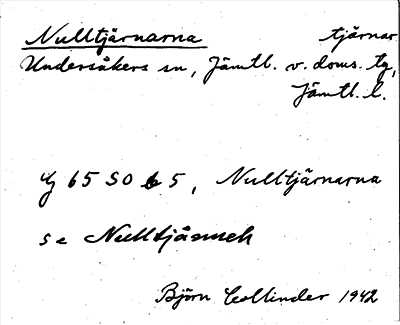 Nulltjärnarna tjärnar
Undersåkers sn, Jämtl. v. doms. tg,
Jämtl. l.
G 65 SO b 5, Nulltjärnarna
se Nulltjänneh
Björn Collinder 1942